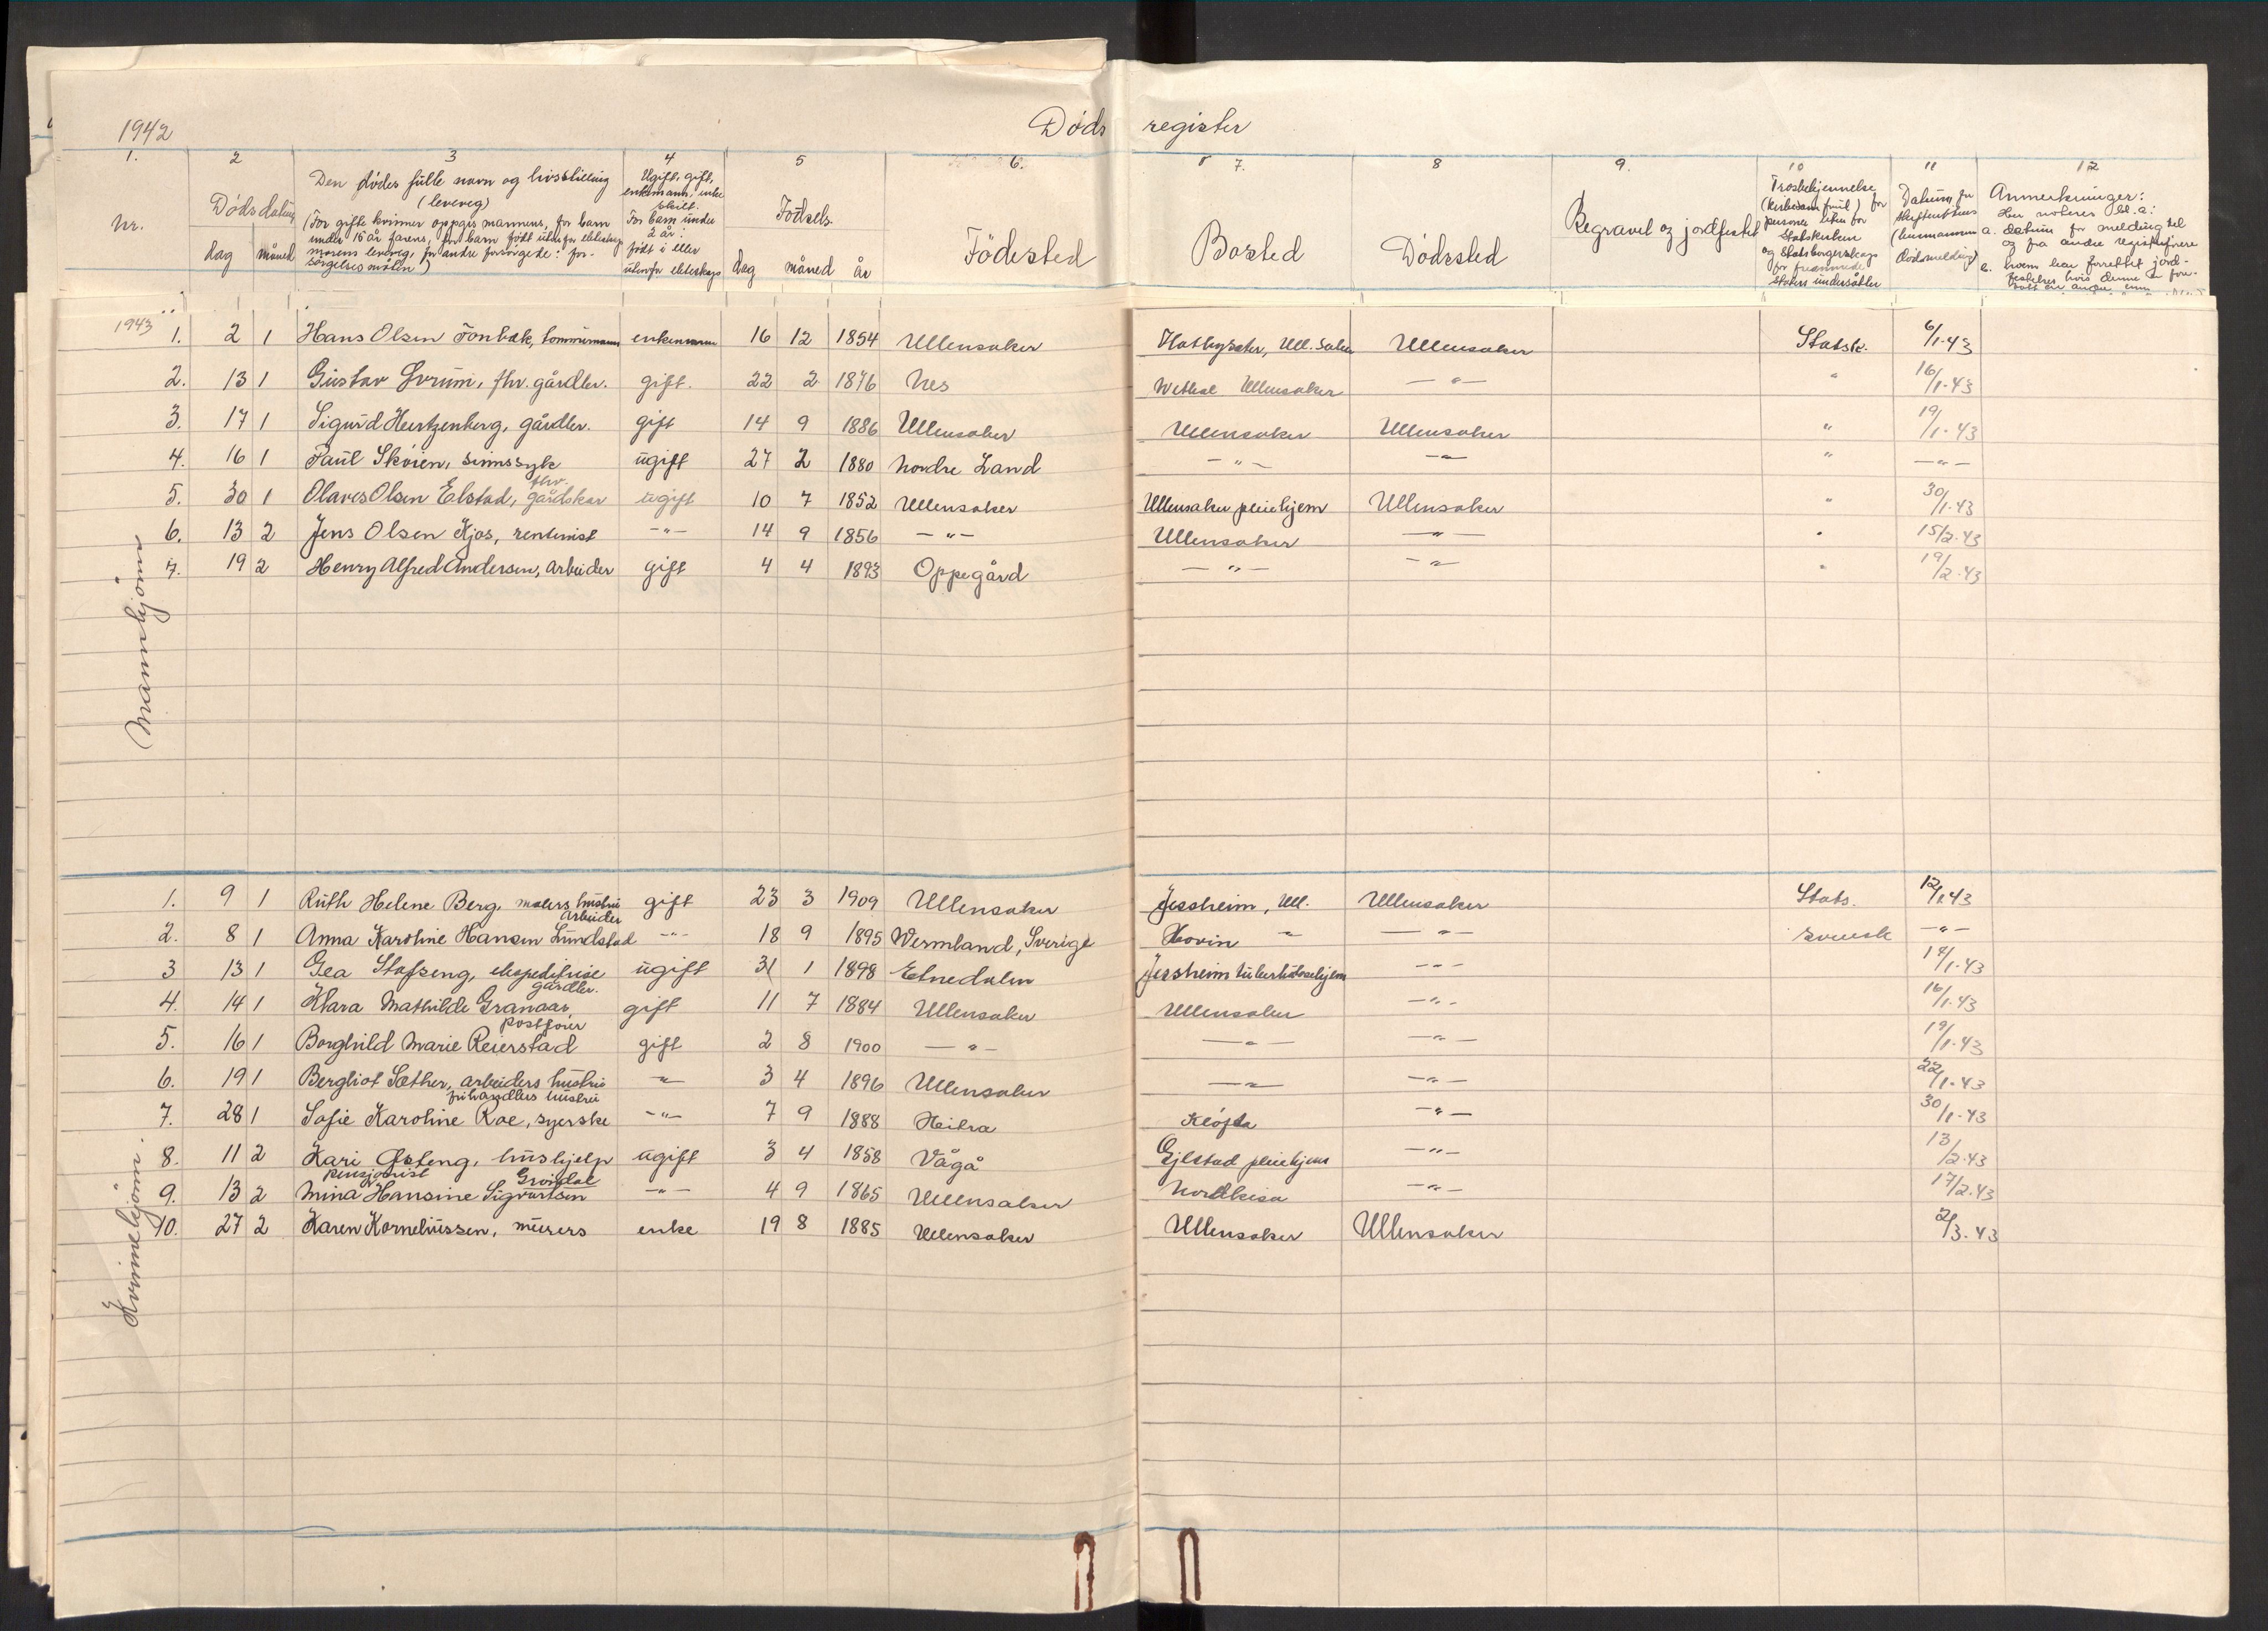 1942 Døds register
1. 2 3 4 5 6. 7. 8 9. 10 11 12
Nr.
Dødsdatum
dag måned
Den dødes fulle navn og livsstilling
(leveveg)
(For gifte kvinner oppgis mannens, for barn
under 15 år farens, for barn født utenfor ekteskap
morens levevei, for andre forsørgede: for-
sørgelsesmåten)
Ugift, gift,
enkemann, enke
skilt.
For barn under
2 år:
født i eller
utenfor ekteskap
Fødsels
dag måned år
Fødested
Bosted
Dødssted
Begravet og jordfestet
Trosbekjennelse
for
personer uten for
Statskirken
og Statsborgerskap
for fremmede
Staters undersåtter
Datum for
Skifterettens
(lensmannens
dødsmelding)
Anmerkninger:
Her noteres bl. a:
a. datum for melding til
og fra andre registerførere
c. hvem har forrettet jord-
festelse, hvis denne er fore-
tatt av andre enn
1943 1. 2 1 Hans Olsen Fonbæk, tømmermann enkemann 16 12 1854 Ullensaker Ull.saker Ullensaker Statsk. 6/1-43
2. 13 1 Gustav Hvrum, fhv. gårdbr. gift. 22 2 1876 Nes Ullensaker — " — " 16/1-43
3. 17 1 Sigurd Hertzenberg, gårdbr. gift 14 9 1886 Ullensaker Ullensaker Ullensaker " 19/1-43
4. 16 1 Paul Skøien, sinnssyk ugift 27 2 1880 Nordre Land — " — — " — " — " —
fhv.
5. 30 1 Olaves Olsen Elstad, gårdskar ugift 10 7 1852 Ullensaker Ullensaker pleiehjem Ullensaker " 30/1-43
6. 13 2 Jens Olsen Kjos, rentenist — " — 14 9 1856 — " — Ullensaker — " — " 15/2-43
7. 19 2 Henry Alfred Andersen, arbeider gift 4 4 1893 Oppegård — " — — " — " 19/2-43
Mannkjønn
1. 9 1 Ruth Helene Berg, malers hustru gift 23 3 1909 Ullensaker Jessheim, Ull. Ullensaker Stats. 12/1-43
arbeider
2. 8 1 Anna Karoline Hansen Lundstad — " — 18 9 1895 Wermland, Sverige Hovin " — " — svensk — " —
3 13 1 Gea Stafseng, ekspeditrise ugift 31 1 1898 Etnedalen Jessheim tuberkulosehjem — " — 18/1-43
gårdbr.
4. 14 1 Klara Mathilde Granaas gift 11 7 1884 Ullensaker Ullensaker — " — 16/1-43
postfører
5. 16 1 Borghild Marie Reierstad gift 2 8 1900 — " — — " — — " — 19/1-43
6. 19 1 Bergliot Sæther, arbeiders hustru — " — 3 4 1896 Ullensaker — " — — " — 22/1-43
frihandlers hustru
7. 28 1 Sofie Karoline Roe, syerske — " — 7 9 1888 Kløfta — " — 30/1-43
8. 11 2 Kari Østeng, hushjelp ugift 3 4 1858 Vågå Gjestad pleiehjem — " — 13/2-43
pensjonist Grøndal
9. 13 2 Mina Hansine Sigvartsen — " — 4 9 1865 Ullensaker Nordkisa — " — 17/2-43
10. 27 2 Karen Korneliussen, murers enke 19 8 1885 Ullensaker Ullensaker Ullensaker 2/3-43
Kvinnekjønn